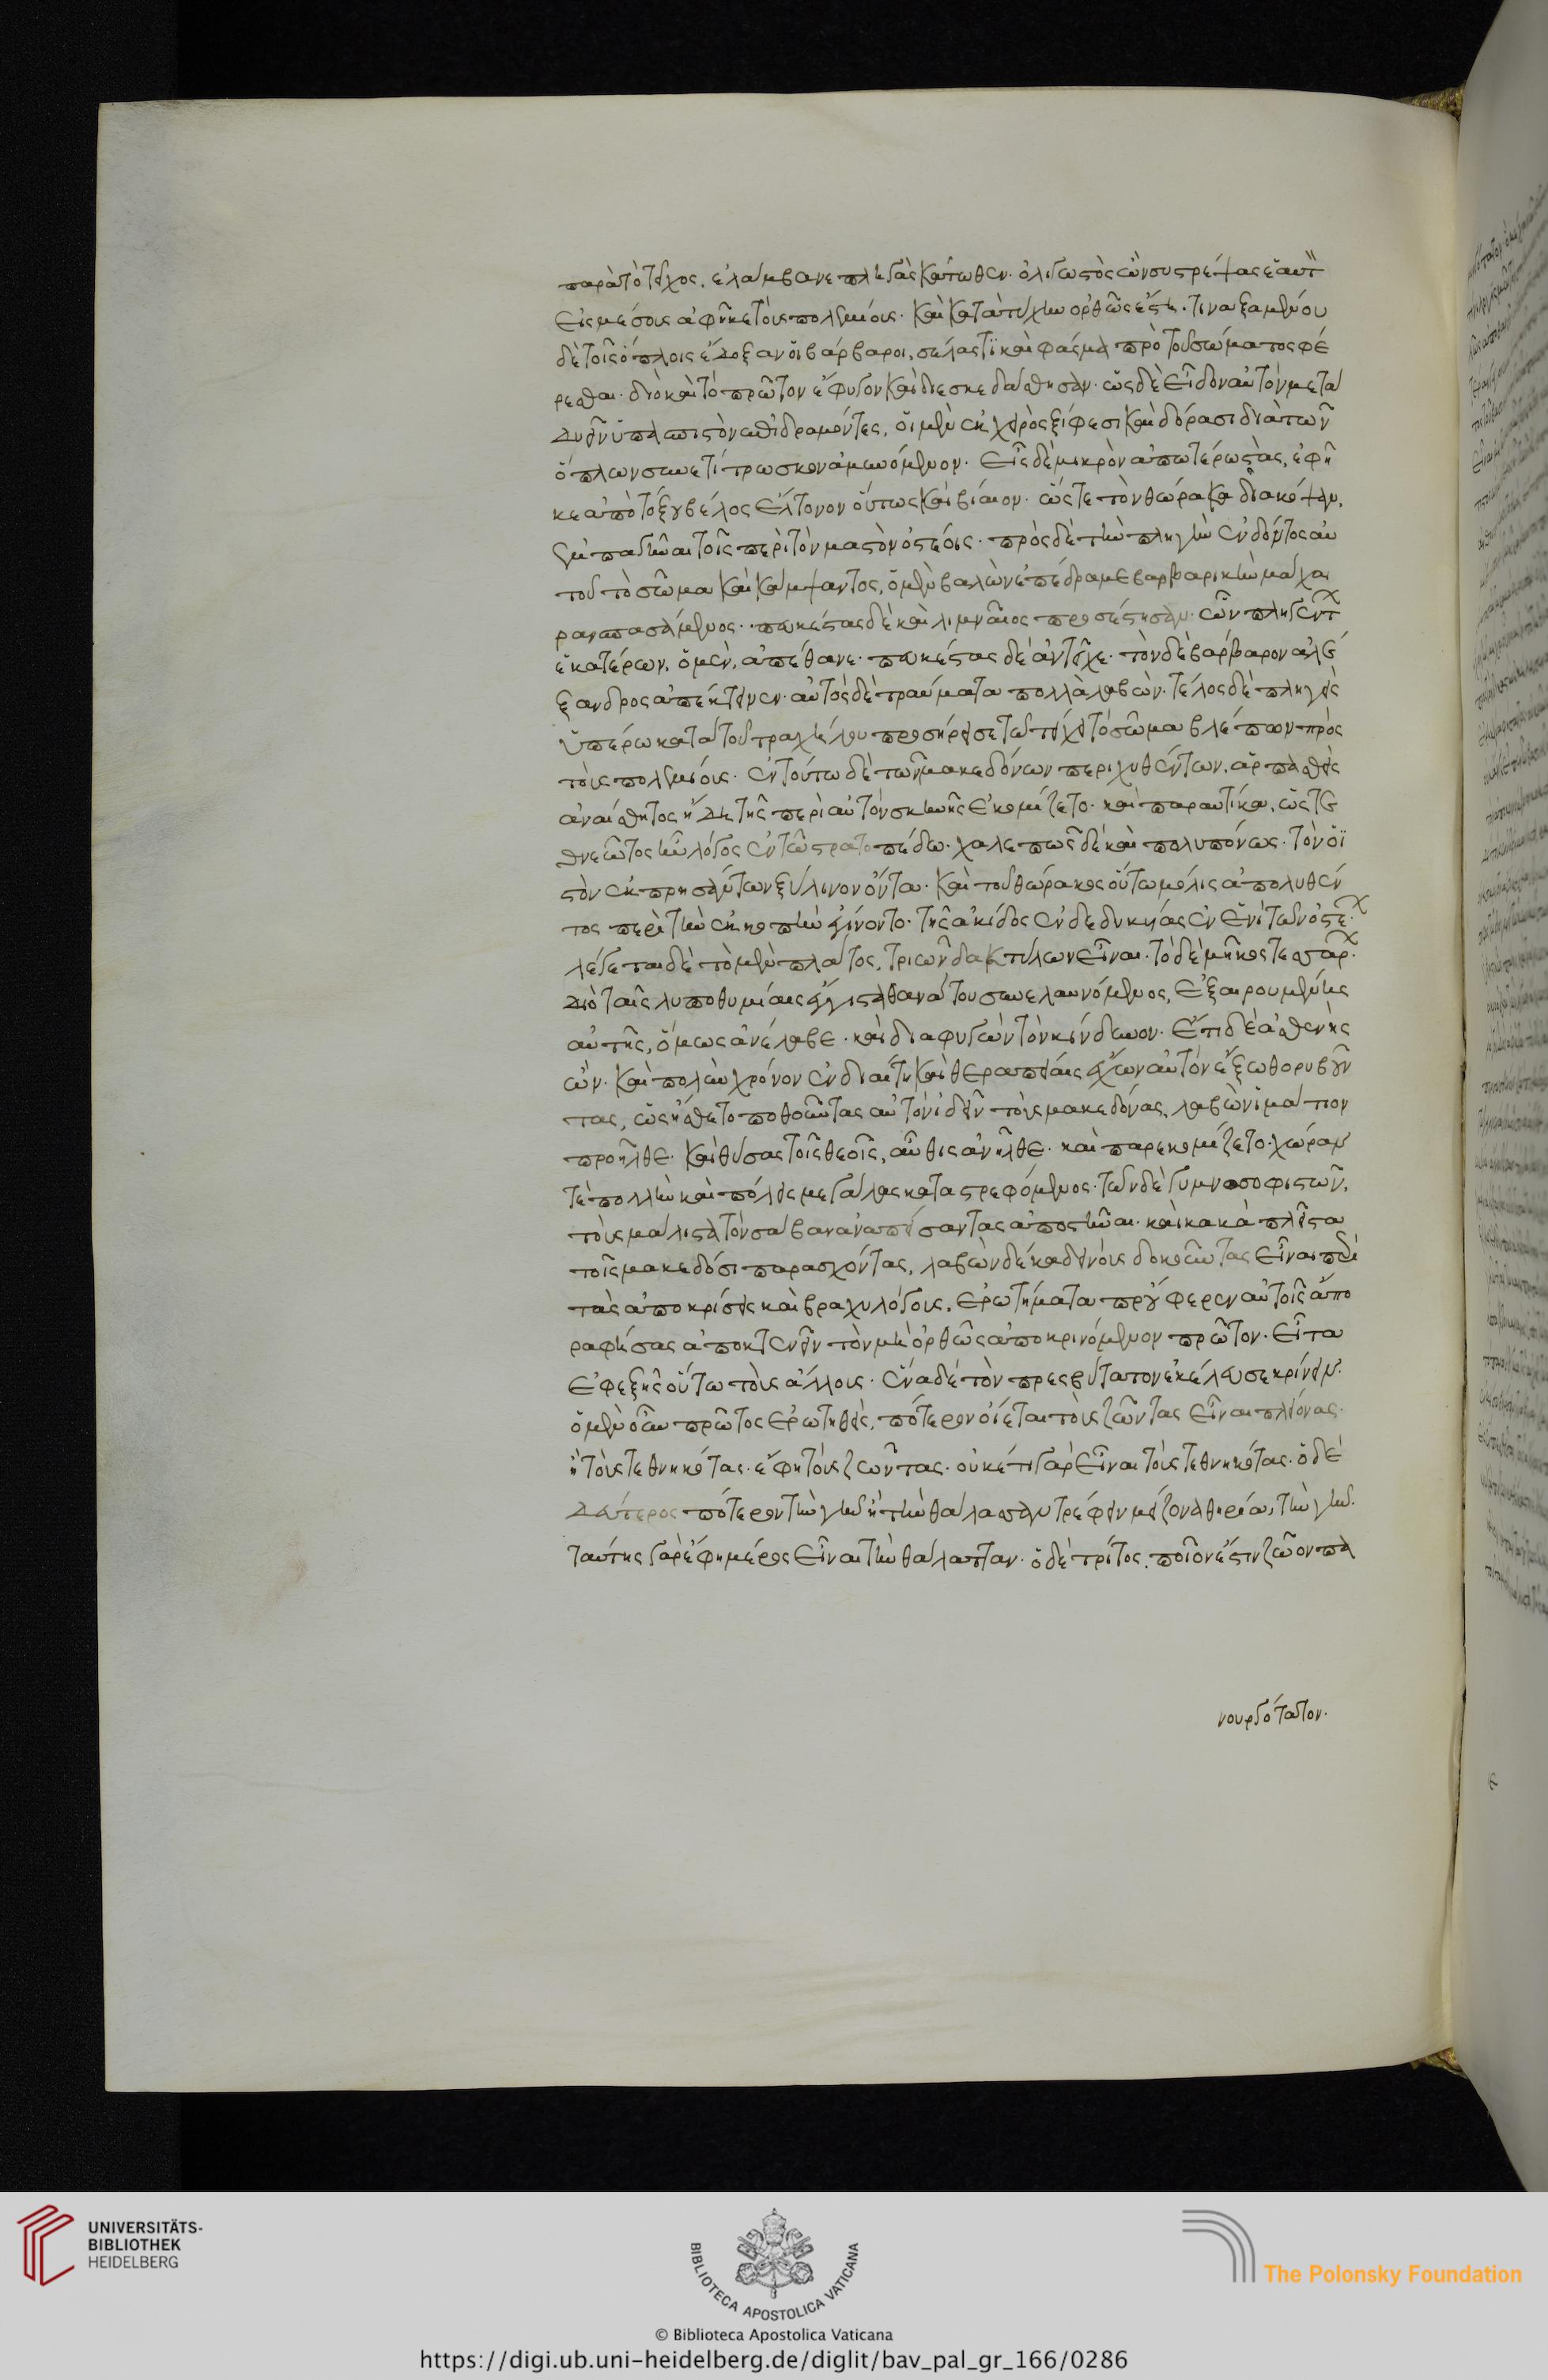 παρὰ τὸ τεῖχος, ἐλάμβανε πληγὰς κάτωθεν. ὀλιγωστὸς ὢν συστρέψας ἑαυτὸν
εἰς μέσους ἀφῆκε τοὺς πολεμίους. καὶ κατὰ τύχην ὀρθὸς ἔστη. τιναξαμένου
δὲ τοῖς ὅπλοις ἔδοξαν οἱ βάρβαροι, σέλας τι καὶ φάσμα πρὸ τοῦ σώματος φέ
ρεσθαι. διὸ καὶ τὸ πρῶτον ἔφυγον καὶ διεσκεδάσθησαν. ὡς δὲ εἶδον αὐτὸν μετὰ
δυεῖν ὑπασπιστῶν ἐπιδραμόντες, οἱ μὲν ἐκ χειρὸς ξίφεσι καὶ δόρασι διὰ τῶν
ὅπλων συνετίτρωσκον ἀμυνόμενον. εἷς δὲ μικρὸν ἀπωτέρω στὰς, ἐφῆ
κε ἀπὸ τόξου βέλος εὔτονον οὕτως καὶ βίαιον. ὥστε τὸν θώρακα διακόψαν,
ἐμπαγῆναι τοῖς περὶ τὸν μαστὸν ὀστέοις. πρὸς δὲ τὴν πληγὴν ἐνδόντος αὐ
τοῦ τὸ σῶμα καὶ κάμψαντος, ὁ μὲν βαλὼν ἐπέδραμε βαρβαρικὴν μάχαι
ραν σπασάμενος. πευκέστας δὲ καὶ λιμναῖος προέστησαν. ὧν πληγέντων
ἑκατέρων, ὁ μὲν, ἀπέθανε. πευκέστας δὲ ἀντεῖχε. τὸν δὲ βάρβαρον ἀλέ
ξανδρος ἀπέκτεινεν. αὐτὸς δὲ τραύματα πολλὰ λαβὼν. τέλος δὲ πληγεὶς
ὑπέρῳ κατὰ τοῦ τραχήλου προσήρεισε τῷ τείχει τὸ σῶμα βλέπων πρὸς
τοὺς πολεμίους. ἐν τούτῳ δὲ τῶν μακεδόνων περιχυθέντων, ἁρπασθεὶς
ἀναίσθητος ἤδη τῆς περὶ αὐτὸν σκηνῆς ἐκομίζετο. καὶ παραυτίκα, ὡς τε
θνεῶτος ἦν λόγος ἐν τῷ στρατοπέδῳ. χαλεπῶς δὲ καὶ πολυπόνως. τὸν ὀϊ
στὸν ἐκπρησάντων ξύλινον ὄντα. καὶ τοῦ θώρακος οὕτω μόλις ἀπολυθέν
τος περὶ τὴν ἐκκοπὴν ἐγίνοντο. τῆς ἀκίδος ἐνδεδυκυίας ἐν ἑνὶ τῶν ὀστέων.
λέγεται δὲ τὸ μὲν πλάτος, τριῶν δακτύλων εἶναι. τὸ δὲ μῆκος τεσσάρων.
διὸ ταῖς λυποθυμίαις ἔγγιστα θανάτου συνελαυνόμενος, ἐξαιρουμένης
αὐτῆς, ὅμως ἀνέλαβε. καὶ διαφυγὼν τὸν κίνδυνον. ἔτι δὲ ἀσθενὴς
ὢν. καὶ πολὺν χρόνον ἐν διαίτῃ καὶ θεραπείαις ἔχων αὐτὸν ἔξω θορυβοῦν
τας, ὡς ᾔσθετο ποθοῦντας αὐτὸν ἰδεῖν τοὺς μακεδόνας, λαβὼν ἱμάτιον
προῆλθε. καὶ θύσας τοῖς θεοῖς, αὖθις ἀνῆλθε. καὶ παρεκομίζετο. χώραν
τὲ πολλὴν καὶ πόλεις μεγάλας καταστρεφόμενος. τῶν δὲ γυμνοσοφιστῶν,
τοὺς μάλιστα τὸν σάβαν ἀναπείσαντας ἀποστῆναι. καὶ κακὰ πλεῖστα
τοῖς μακεδόσι παρασχόντας, λαβὼν δέκα δεινοὺς δοκοῦντας εἶναι περὶ
τὰς ἀποκρίσεις καὶ βραχυλόγους, ἐρωτήματα προὔφερεν αὐτοῖς ἄπο
ραφήσας ἀποκτενεῖν τὸν μὴ ὀρθῶς ἀποκρινόμενον πρῶτον. εἶτα
ἐφεξῆς οὕτω τοὺς ἄλλους. ἕνα δὲ τὸν πρεσβύτατον ἐκέλευσε κρίνειν.
ὁ μὲν οὖν πρῶτος ἐρωτηθεὶς, πότερον οἴεται τοὺς ζῶντας εἶναι πλείονας.
ἢ τοὺς τεθνηκότας. ἔφη τοὺς ζῶντας. οὐκέτι γὰρ εἶναι τοὺς τεθνηκότας. ὁ δὲ
δεύτερος πότερον τὴν γῆν ἢ τὴν θάλασσαν τρέφειν μείζονα θηρία, τὴν γῆν.
ταύτης γὰρ ἔφη μέρος εἶναι τὴν θάλατταν. ὁ δὲ τρίτος, ποῖον ἔστιν ζῶον πα
νουργότατον.
UNIVERSITÄTS-
BIBLIOTHEK
HEIDELBERG
BIBLIOTECA APOSTOLICA VATICANA
The Polonsky Foundation
© Biblioteca Apostolica Vaticana
https://digi.ub.uni-heidelberg.de/diglit/bav_pal_gr_166/0286